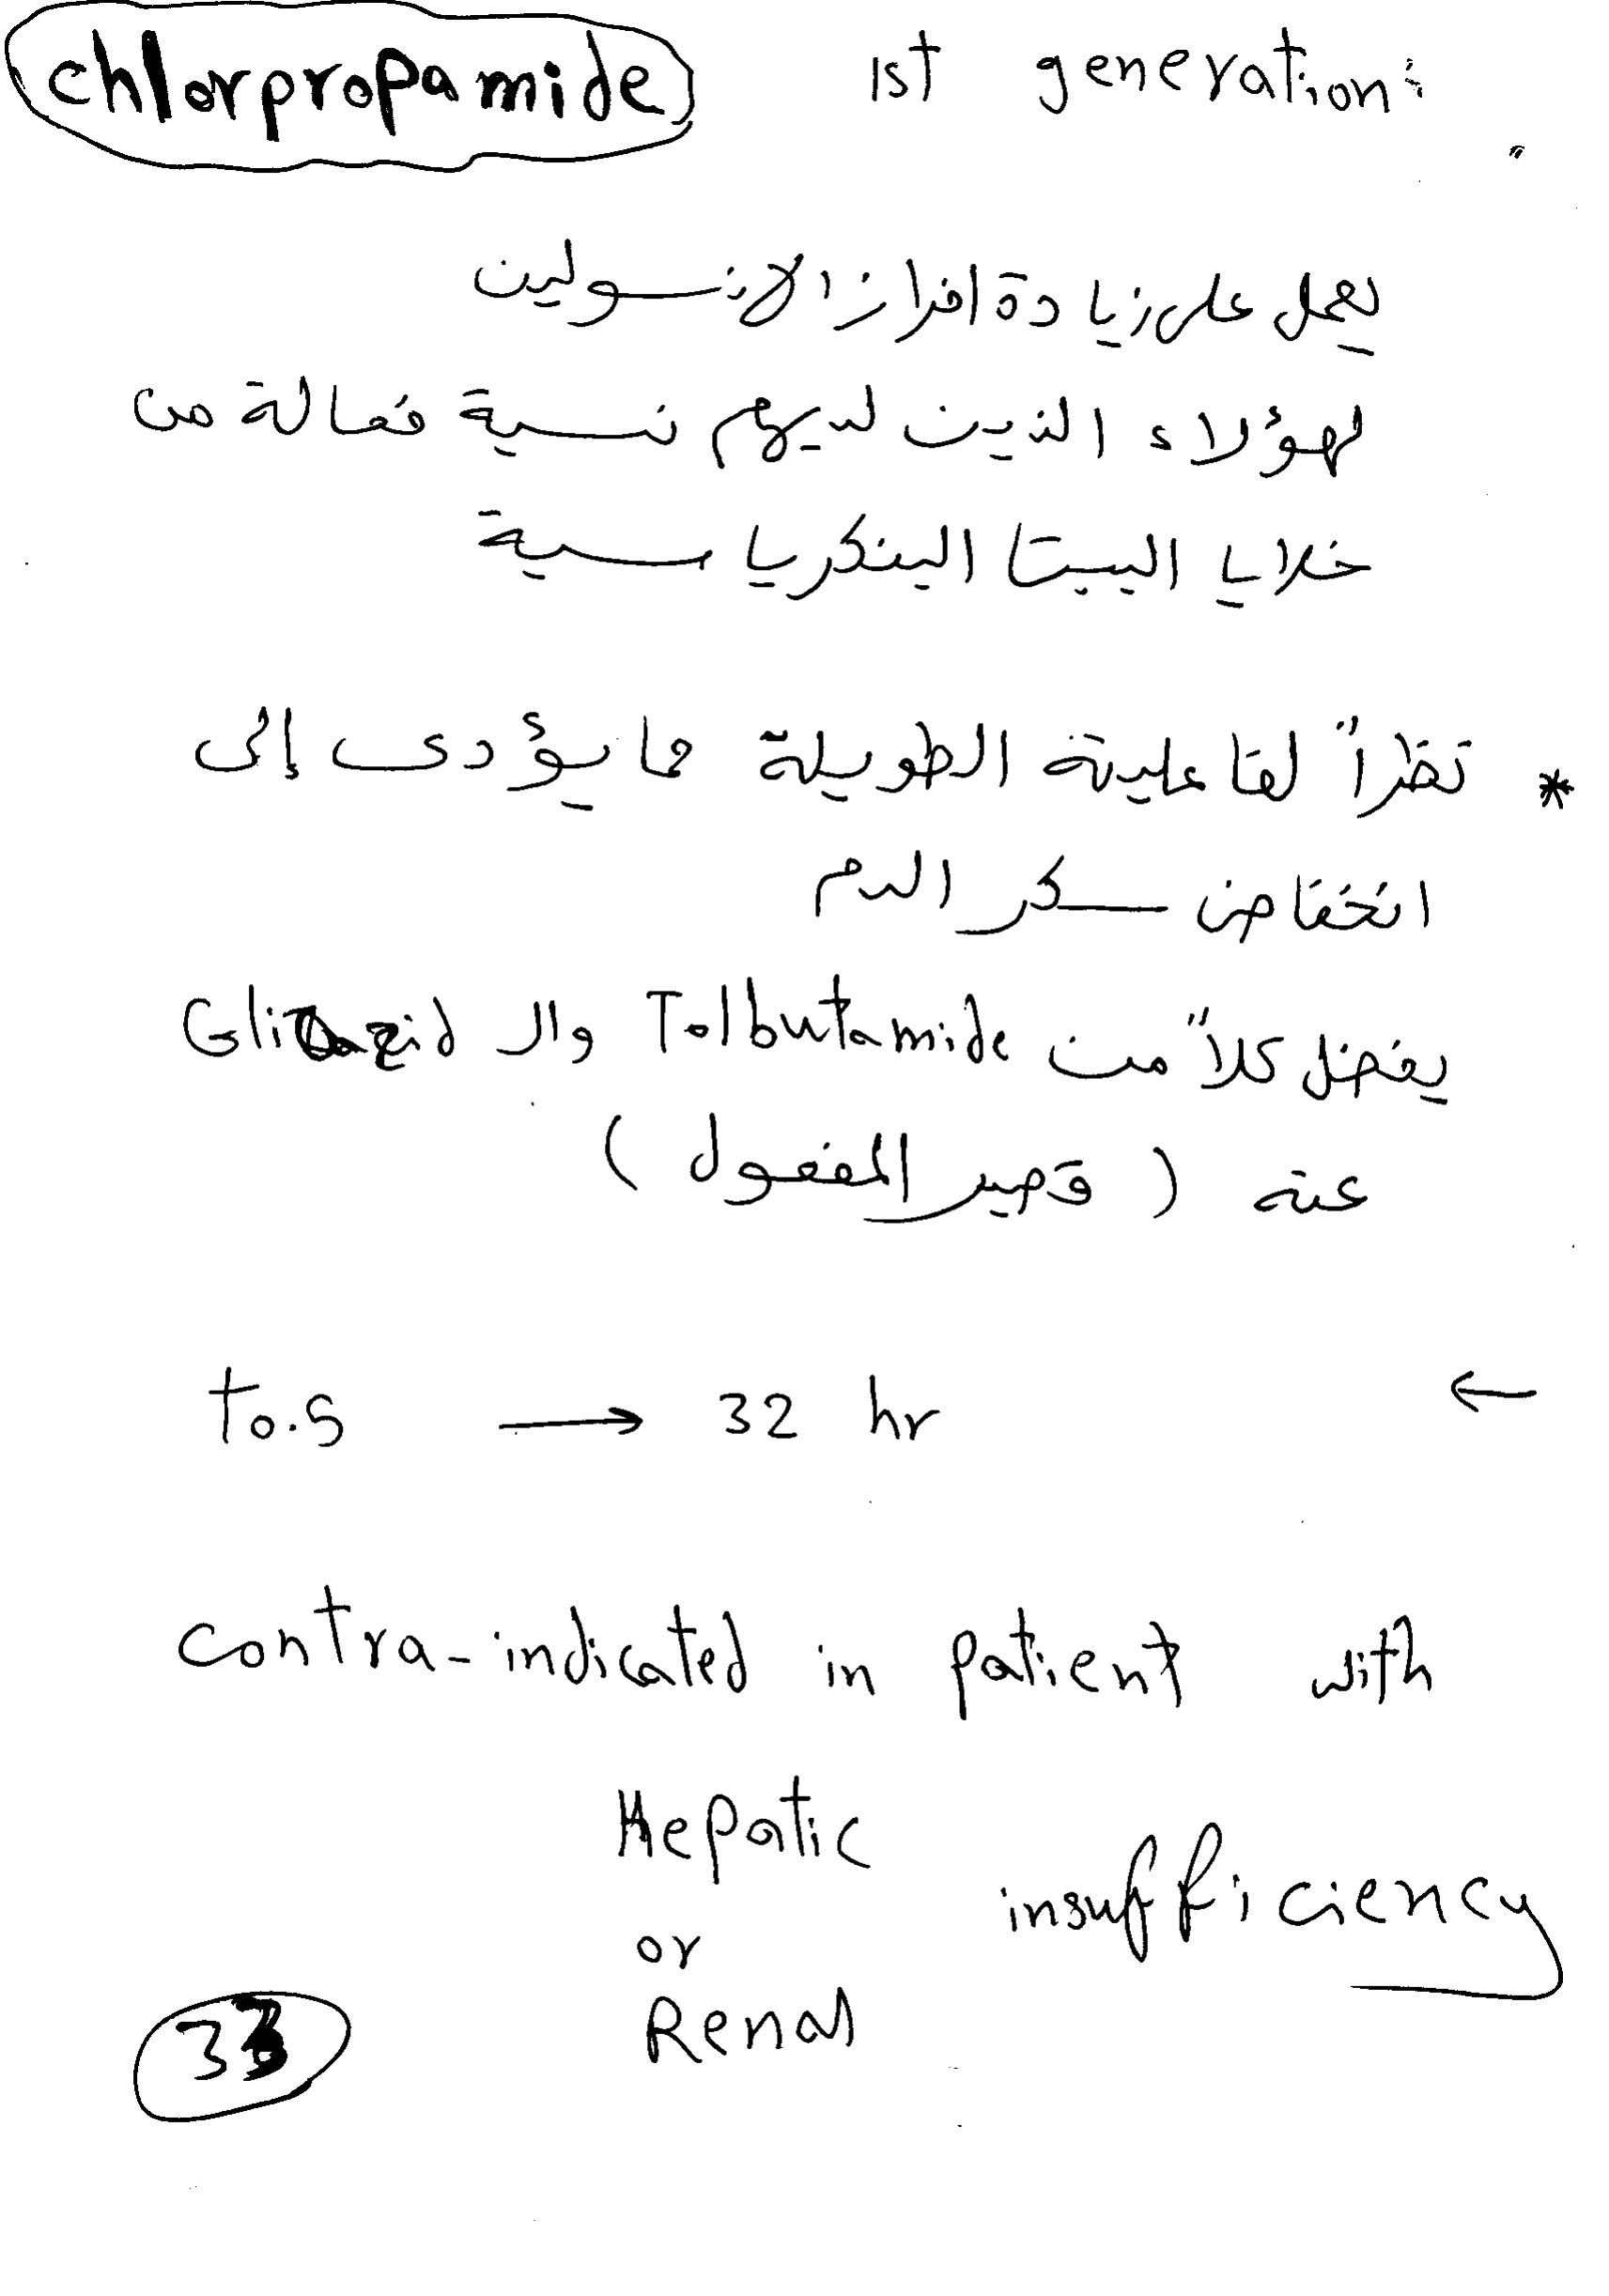 chlorpropamide 1st generation:
يعمل على زيادة افراز الانسولين
لهؤلاء الذين لديهم نسبة فعالة من
خلايا البيتا البنكرياسية
* نظراً لفاعليته الطويلة مما يؤدى إلى
انخفاض سكر الدم
يفضل كلاً من Tolbutamide وال Gliclazid
عنه ( قصير المفعول )
← t0.5 → 32 hr
contra-indicated in patient with
Hepatic
or
Renal
insufficiency
33